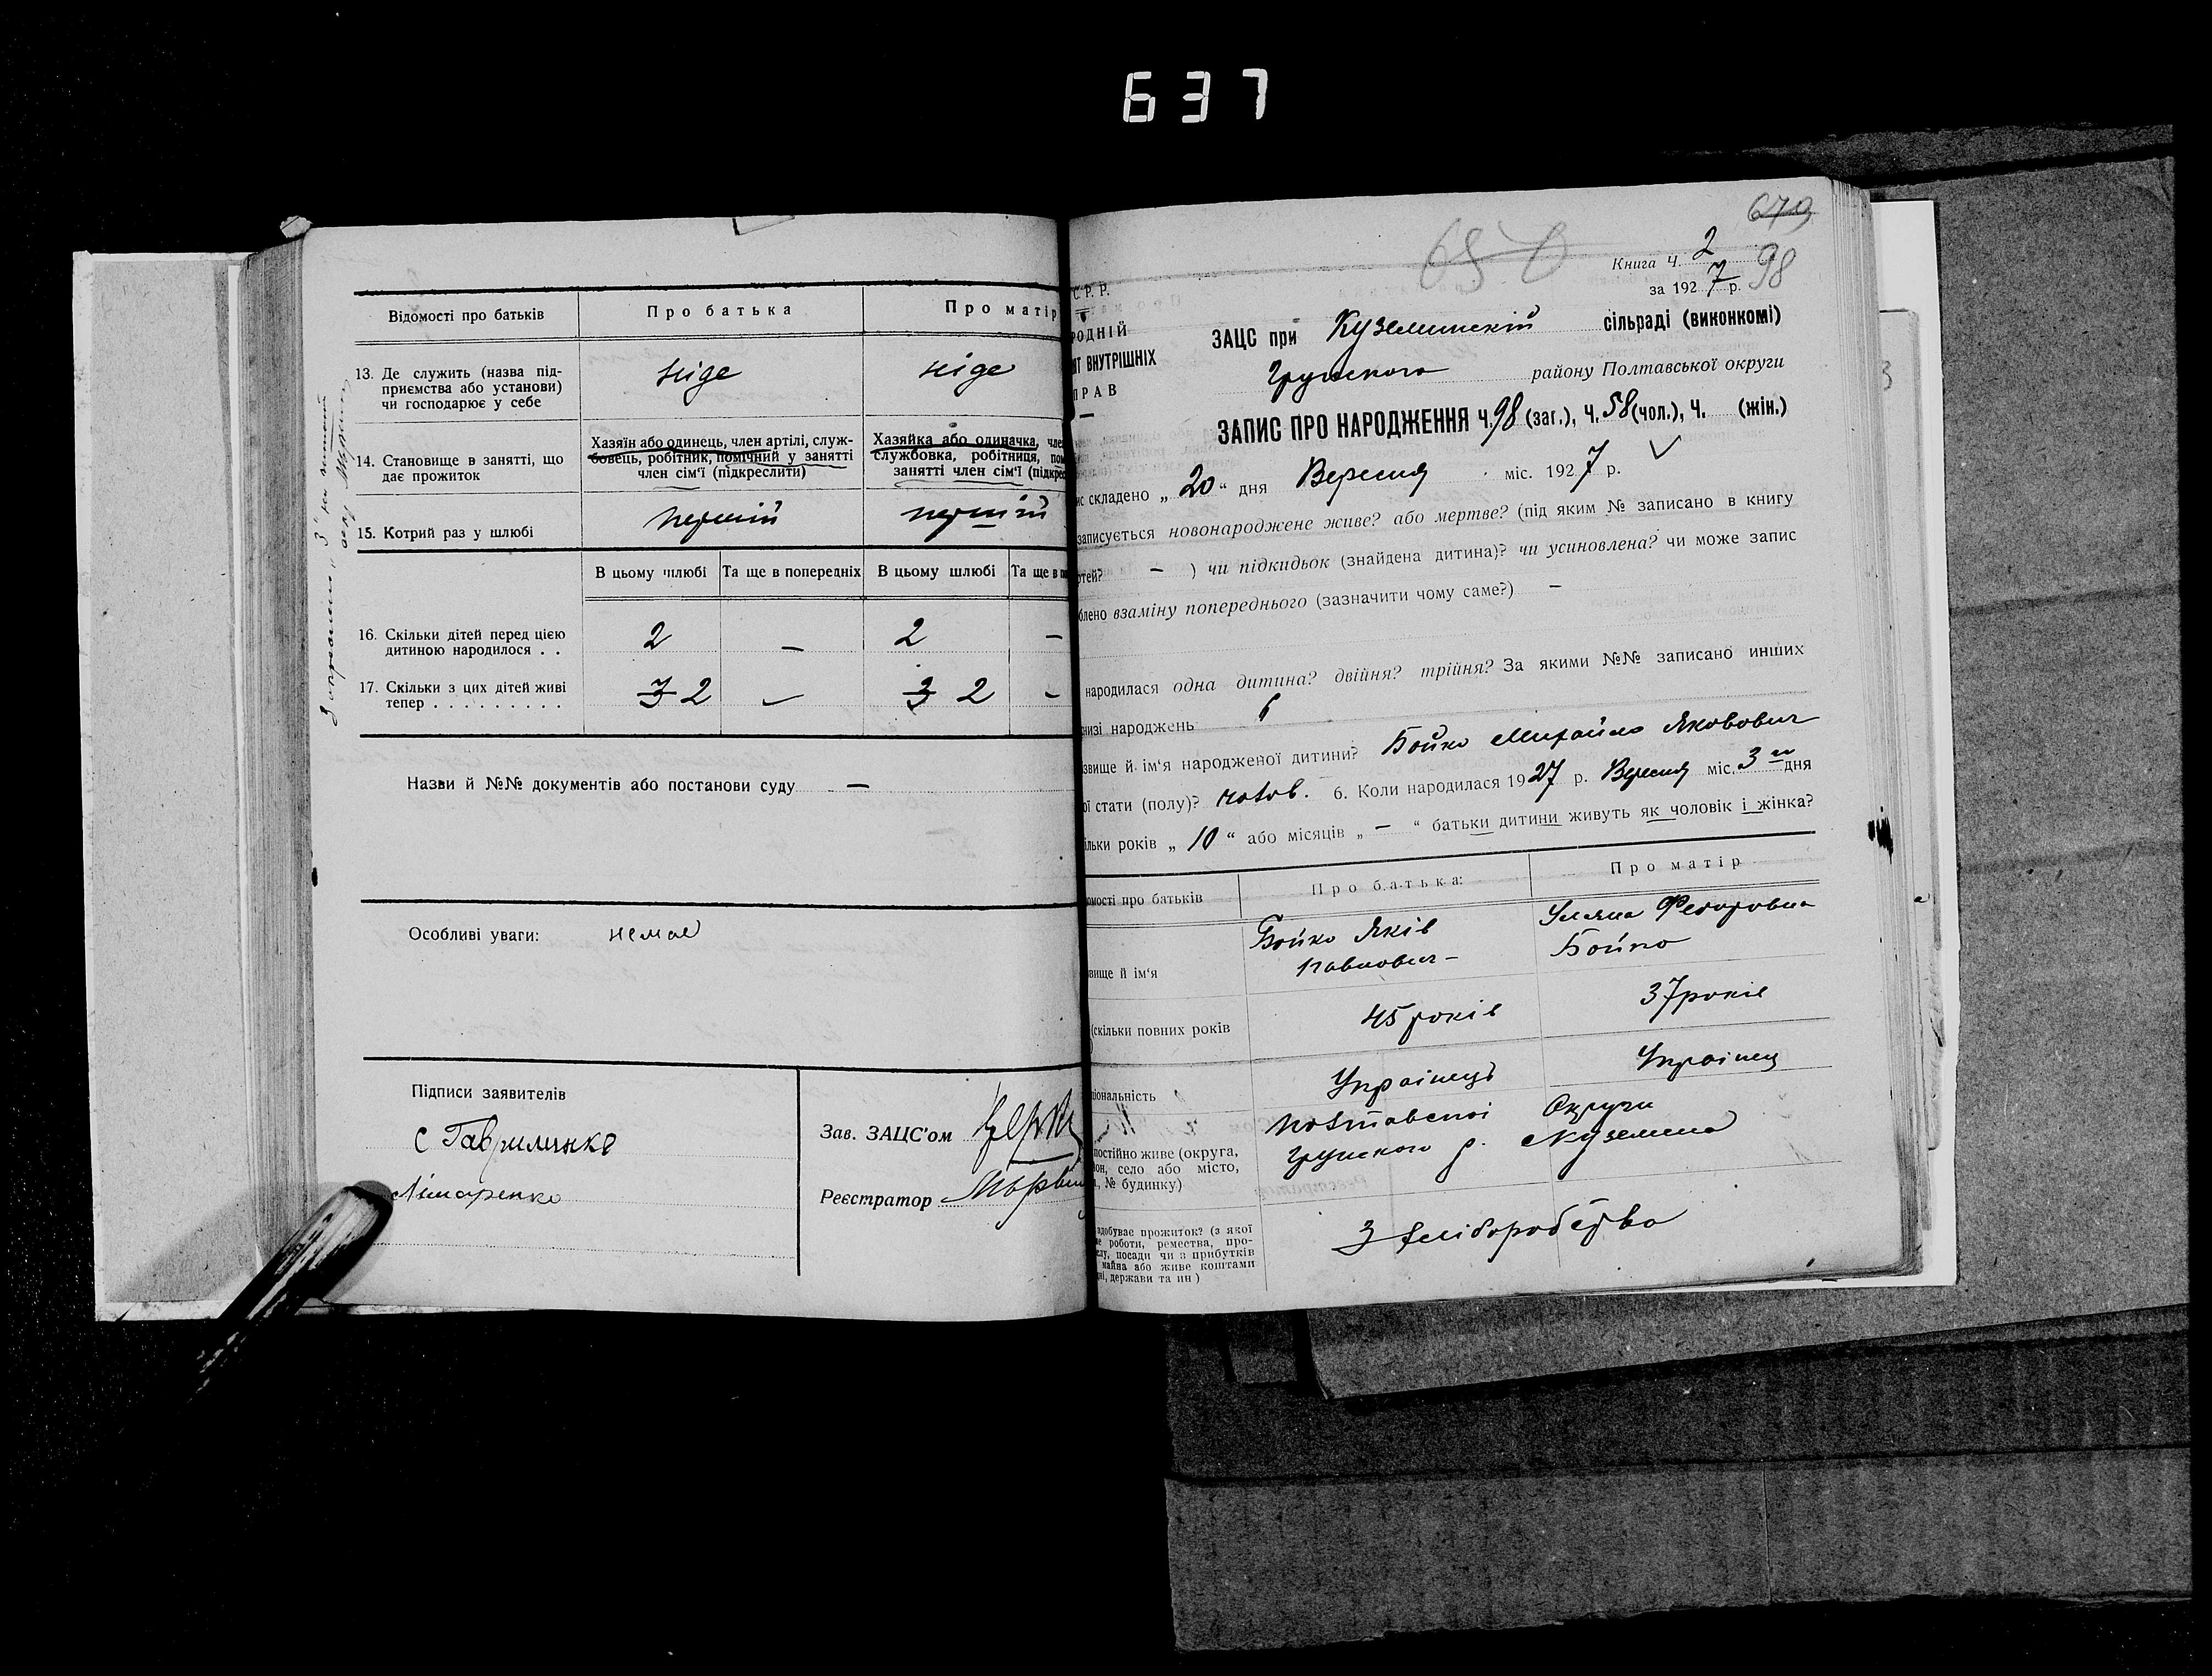 637
Відомості про батьків
Про батька
Про матір
13. Де служить (назва під-
приємства або установи)
чи господарює у себе
ніде
ніде
14. Становище в занятті, що
дає прожиток
Хазяїн або одинець, член артілі, служ-
бовець, робітник, помічний у занятті
член сім'ї (підкреслити)
Хазяйка або одиначка, чле
службовка, робітниця, пом
занятті член сім'ї (підкре
15. Котрий раз у шлюбі
перший
перший
В цьому шлюбі
Та ще в попередніх
В цьому шлюбі
Та ще в по
16. Скільки дітей перед цією
дитиною народилося . .
2 — 2 —
17. Скільки з цих дітей живі
тепер . . . . . . . . .
3 2 — 3 2 —
Назви й №№ документів або постанови суду —
Особливі уваги: немає
Підписи заявителів
С Гаврилинко
Зав. ЗАЦС'ом
Реєстратор
679
Книга Ч. 2
98
за 1927 р.
С. Р. Р.
РОДНІЙ
ІТ ВНУТРІШНІХ
ПРАВ
ЗАЦС при Куземинскій сільраді (виконкомі)
Грунського району Полтавської округи
ЗАПИС ПРО НАРОДЖЕННЯ Ч. 98 (заг.), Ч. 58 (чол.), Ч. (жін.)
ис складено „ 20 “ дня Вересня міс. 1927 р.
записується новонароджене живе? або мертве? (під яким № записано в книгу
ртей? — ) чи підкидьок (знайдена дитина)? чи усиновлена? чи може запис
блено взаміну попереднього (зазначити чому саме?) —
народилася одна дитина? двійня? трійня? За якими №№ записано инших
низі народжень
звище й ім'я народженої дитини? Бойко Михайло Якович
ої стати (полу)? чолов. 6. Коли народилася 1927 р. Вересня міс. 3 дня
ільки років „ 10 “ або місяців „ — “ батьки дитини живуть як чоловік і жінка?
омості про батьків
Про батька:
Про матір
вище й ім'я
Бойко Яків
Павлович
Уляна Федоровна
Бойко
(скільки повних років
45 років
37 років
ціональність
Українець
Українец
постійно живе (округа,
он, село або місто,
, № будинку)
Полтавскої Округи
Грунского р. Куземина
здобуває прожиток? (з якої
ме роботи, ремества, про-
елу, посади чи з прибутків
майна або живе коштами
ні, держави та ин)
З хліборобства